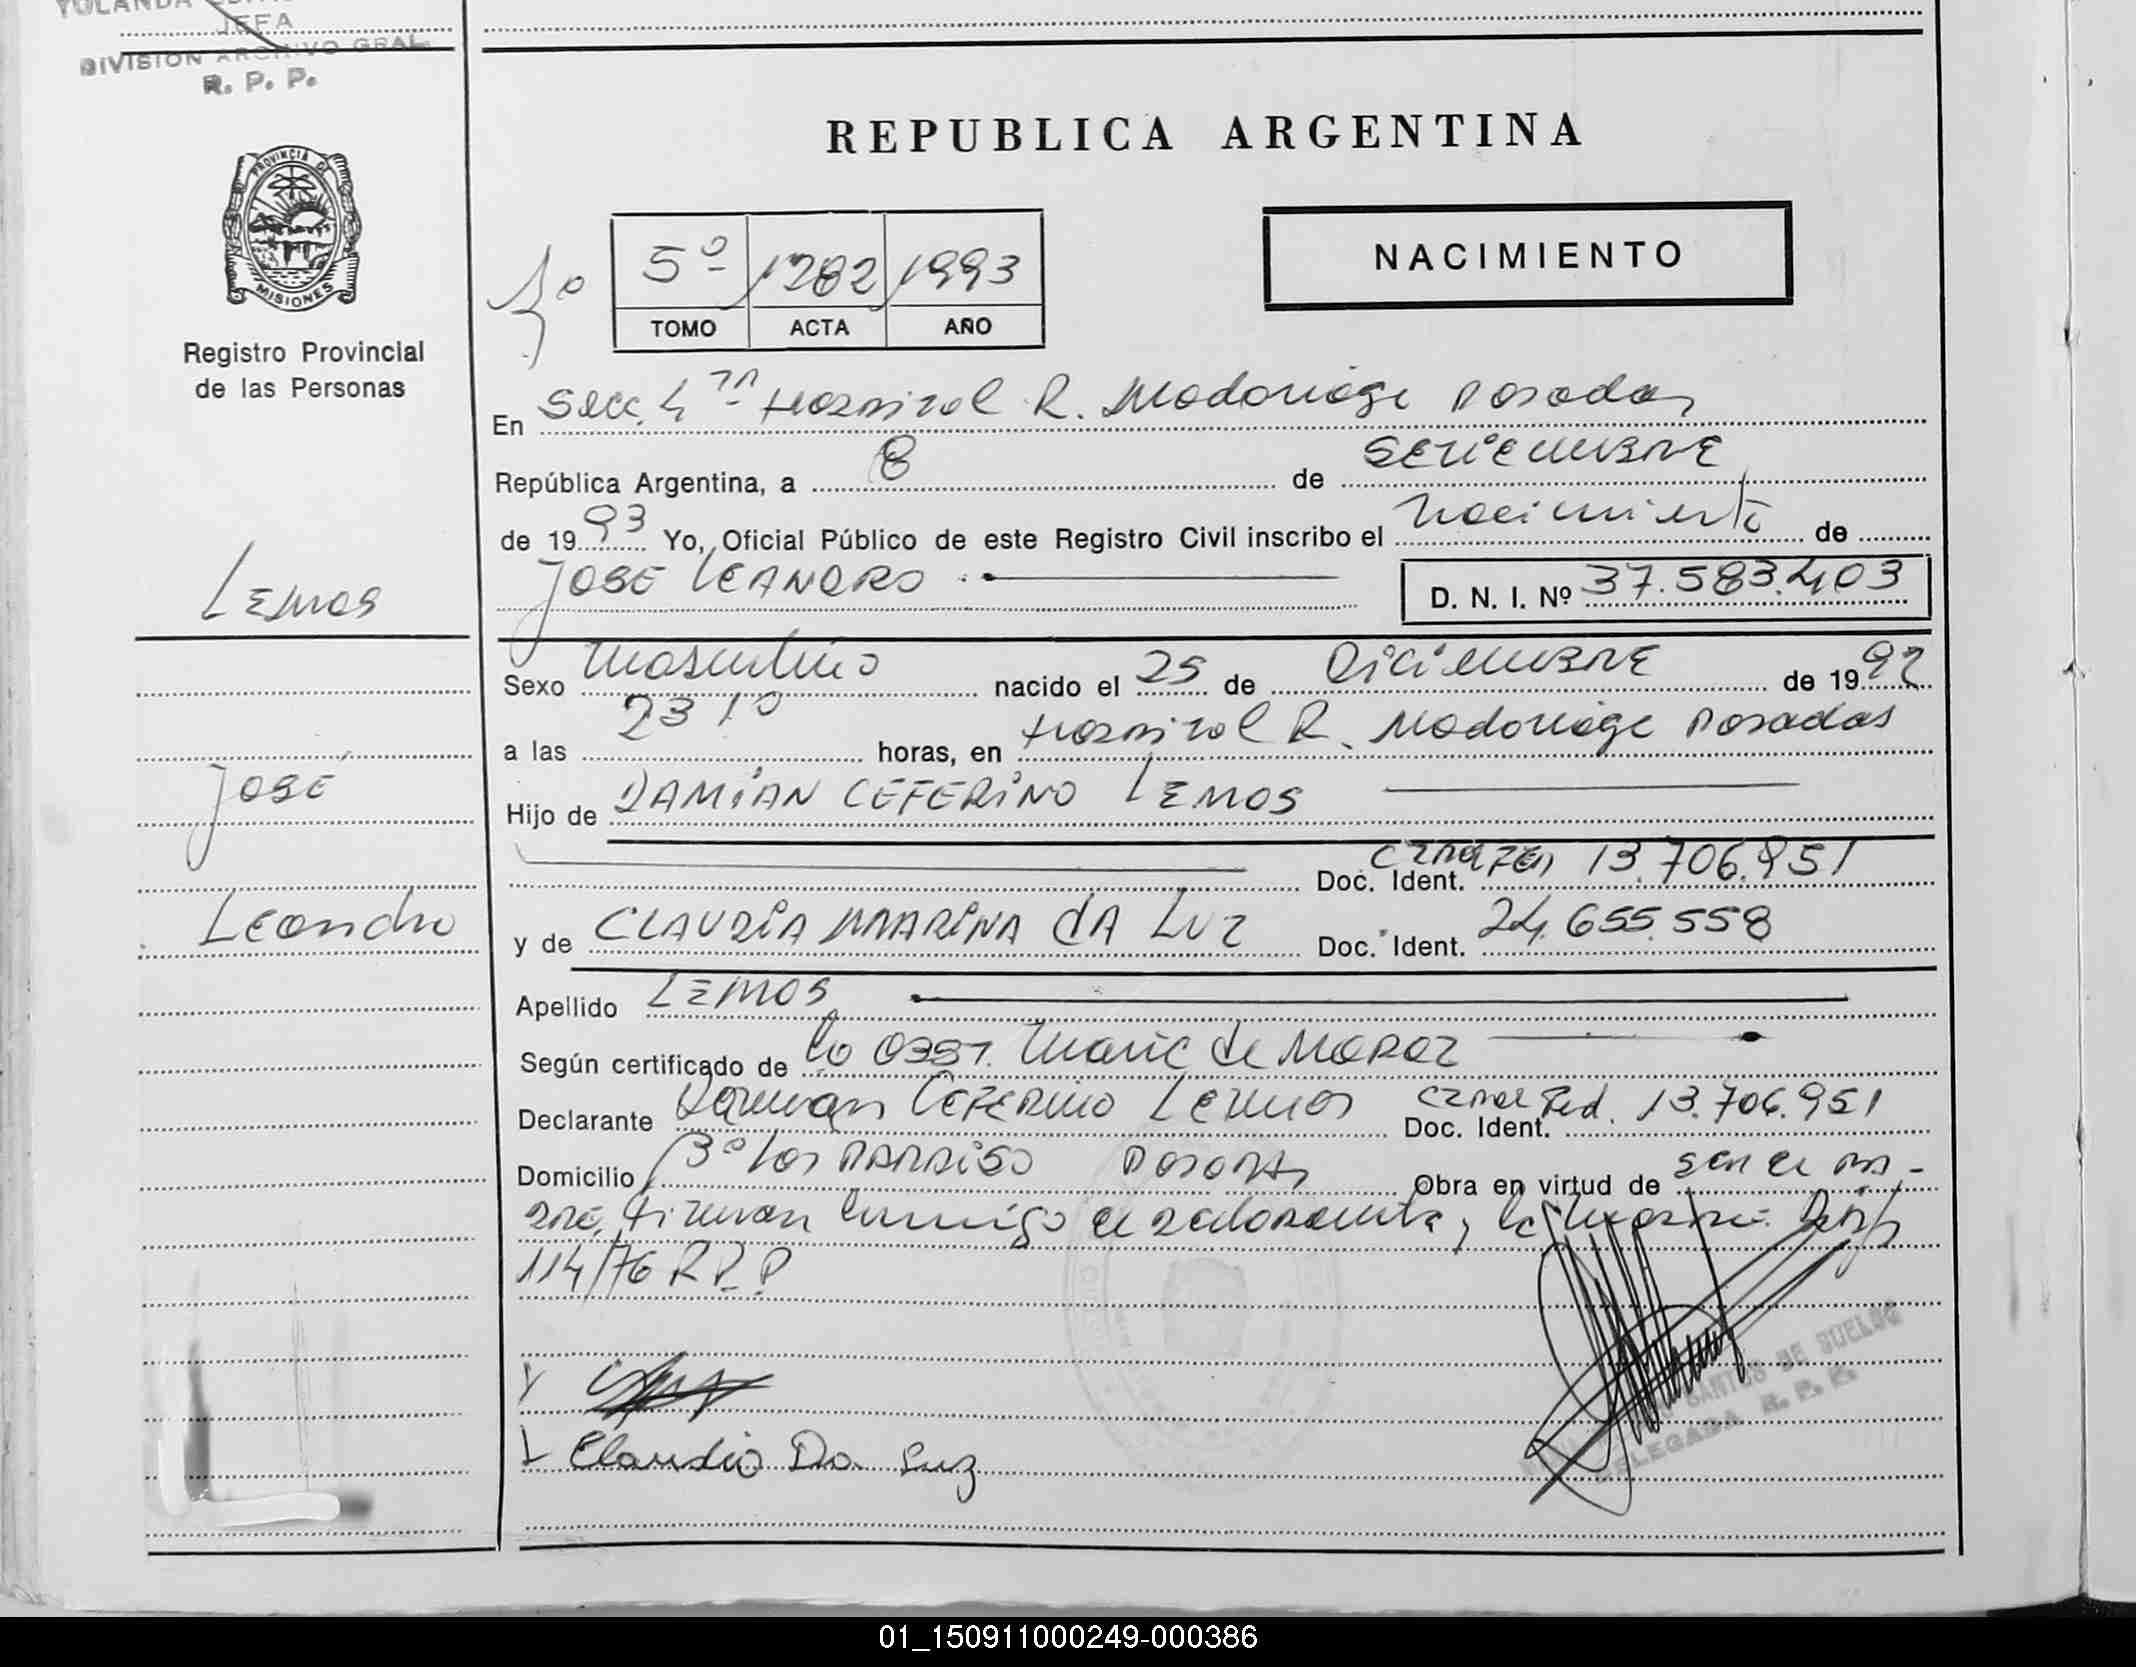 JEFA
DIVISION ARCHIVO GRAL.
R. P. P.
REPUBLICA ARGENTINA
PROVINCIA DE
MISIONES
Registro Provincial
de las Personas
5º 1282 1993
TOMO ACTA AÑO
NACIMIENTO
En Secc. 4ta Hospital R. Madariaga Posadas
República Argentina, a 8 de Setiembre
de 1993 Yo, Oficial Público de este Registro Civil inscribo el Nacimiento de
JOSE LEANDRO D. N. I. Nº 37.583.403
Lemos
Sexo Masculino nacido el 25 de Diciembre de 1992
a las 23 10 horas, en Hospital R. Madariaga Posadas
José
Hijo de DAMIAN CEFERINO LEMOS
Doc. Ident. 13.706.951
Leandro
y de CLAUDIA MARINA dA LUZ Doc. Ident. 24.655.558
Apellido LEMOS
Según certificado de la Obst. Maria de
Declarante Damian Ceferino Lemos Doc. Ident. 13.706.951
Domicilio Posadas Obra en virtud de ser el pa-
dre, firman conmigo el declarante, la
114/76 R.P.P
Claudia Da Luz
SANTOS DE
DELEGADA R. P. P.
01_150911000249-000386